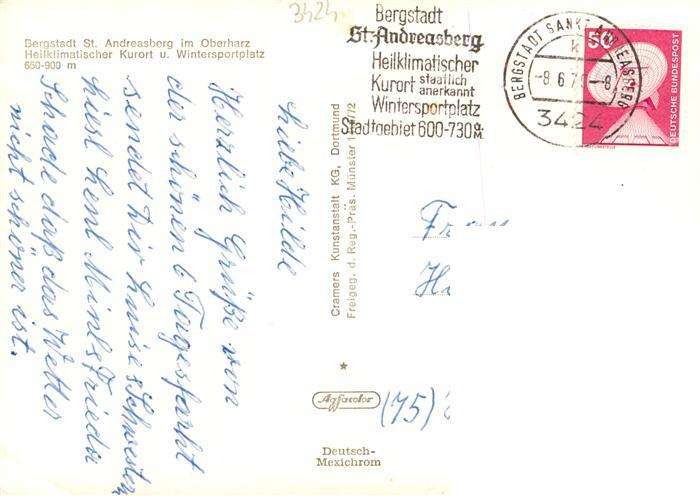 3424
Bergstadt St. Andreasberg im Oberharz
Heilklimatischer Kurort u. Wintersportplatz
650-900 m
Bergstadt
St. Andreasberg
Heilklimatischer
Kurort staatlich anerkannt
Wintersportplatz
Stadtgebiet 600-730 m
BERGSTADT SANKT ANDREASBERG
k
-8.6.7
3424
50
DEUTSCHE BUNDESPOST
Liebe Hilde
Herzlich Grüße von
der schönen 6 Tagesfarht
sendet dir Luise Schwester
Schade daß das Wetter
nicht schöner ist.
Cramers Kunstanstalt KG, Dortmund
Freigeg. d. Reg.-Präs. Münster
Agfacolor
Deutsch-
Mexichrom
Frau
(75)